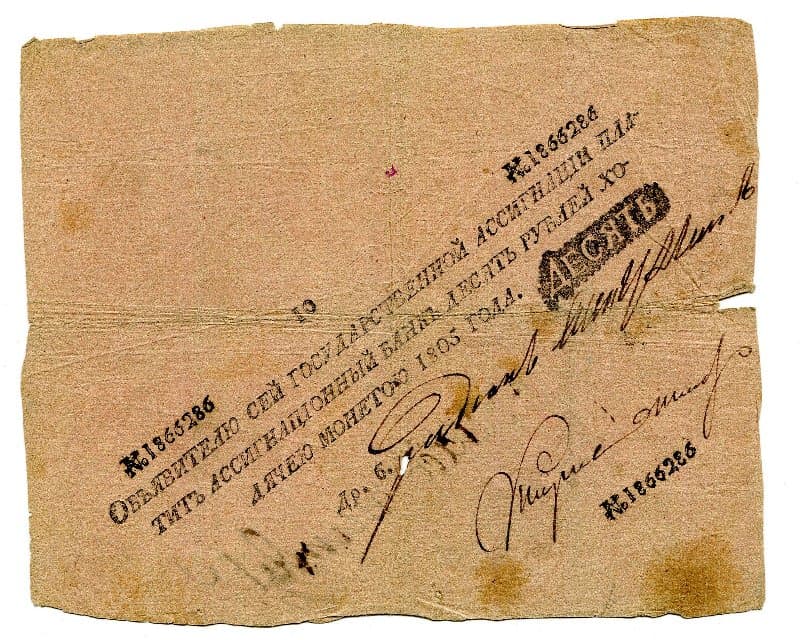 №1866286
№1866286
10
ОБЪЯВИТЕЛЮ СЕЙ ГОСУДАРСТВЕННОЙ АССИГНАЦІИ ПЛА-
ТИТЪ АССИГНАЦІОННЫЙ БАНКЪ ДЕСЯТЬ РУБЛЕЙ ХО-
ДЯЧЕЮ МОНЕТОЮ 1805 ГОДА.
ДЕСЯТЬ
Др. 6.
№1866286